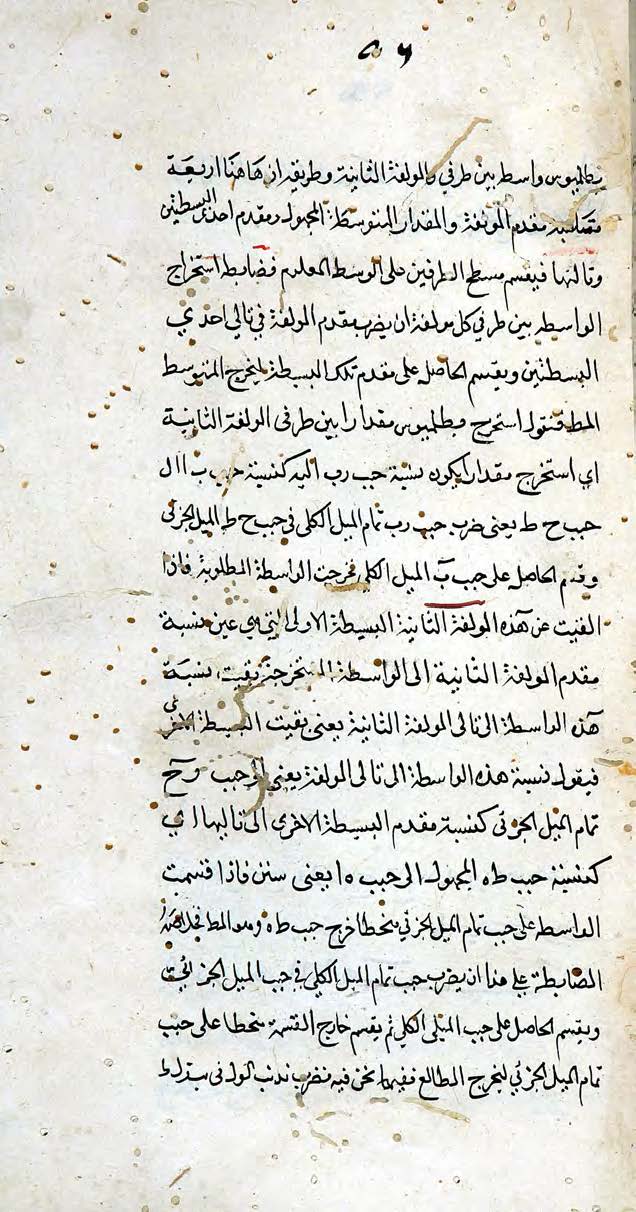 ٥٦
بطلميوس واسطة بين طرفي المولفة الثانية وطريقه ان هاهنا اربعة
متناسبة مقدم المولفة والمقدار المتوسطة المجهول ومقدم احدى البسطتين
وتاليها فيقسم مسطح الطرفين على الوسط المعلوم فضابطه استخراج
الواسطه بين طرفي كل مولفة ان يضرب مقدم المولفة في تالي احدي
البسطتين ويقسم الحاصل على مقدم تلك البسيطة ليخرج المتوسط
المط فنقول استخرج بطلميوس مقدارا بين طرفى المولفة الثانية
اي استخرج مقدارا يكون نسبة جب رب اليه كنسبة جب ب ا ال
جب ح ط يعنى ضرب جيب رب تمام الميل الكلى فى جيب ح ط الميل الجزئى
وقسم الحاصل على جب بَ الميل الكلى فخرجت الواسطة المطلوبة فاذا
الفيت من هذه المولفة الثانية البسيطة الاولى التي هي عين نسبة
مقدم المولفة الثانية الى الواسطة المستخرجة بقيت نسبة
هذه الواسطة الى تالى المولفة الثانية يعنى بقيت البسيطة الاخرى
فيقول نسبة هذه الواسطة الى تالى المولفة يعنى الى جب رح
تمام الميل الجزئى كنسبة مقدم البسيطة الاخرى الى تاليها اي
كنسبة جيب ط ه المجهول الى جيب ه ا يعنى ستين فاذا قسمت
الواسطه على جب تمام الميل الجزئي منحطا خرج جب ط ه وهو المط
الضابطة على هذا ان يضرب جب تمام الميل الكلى في جب الميل الجزئى
ويقسم الحاصل على جيب الميل الكلى ثم يقسم خارج القسمة منحطا على جيب
تمام الميل الجزئي ليخرج المطالع ففيما نحن فيه نضرب